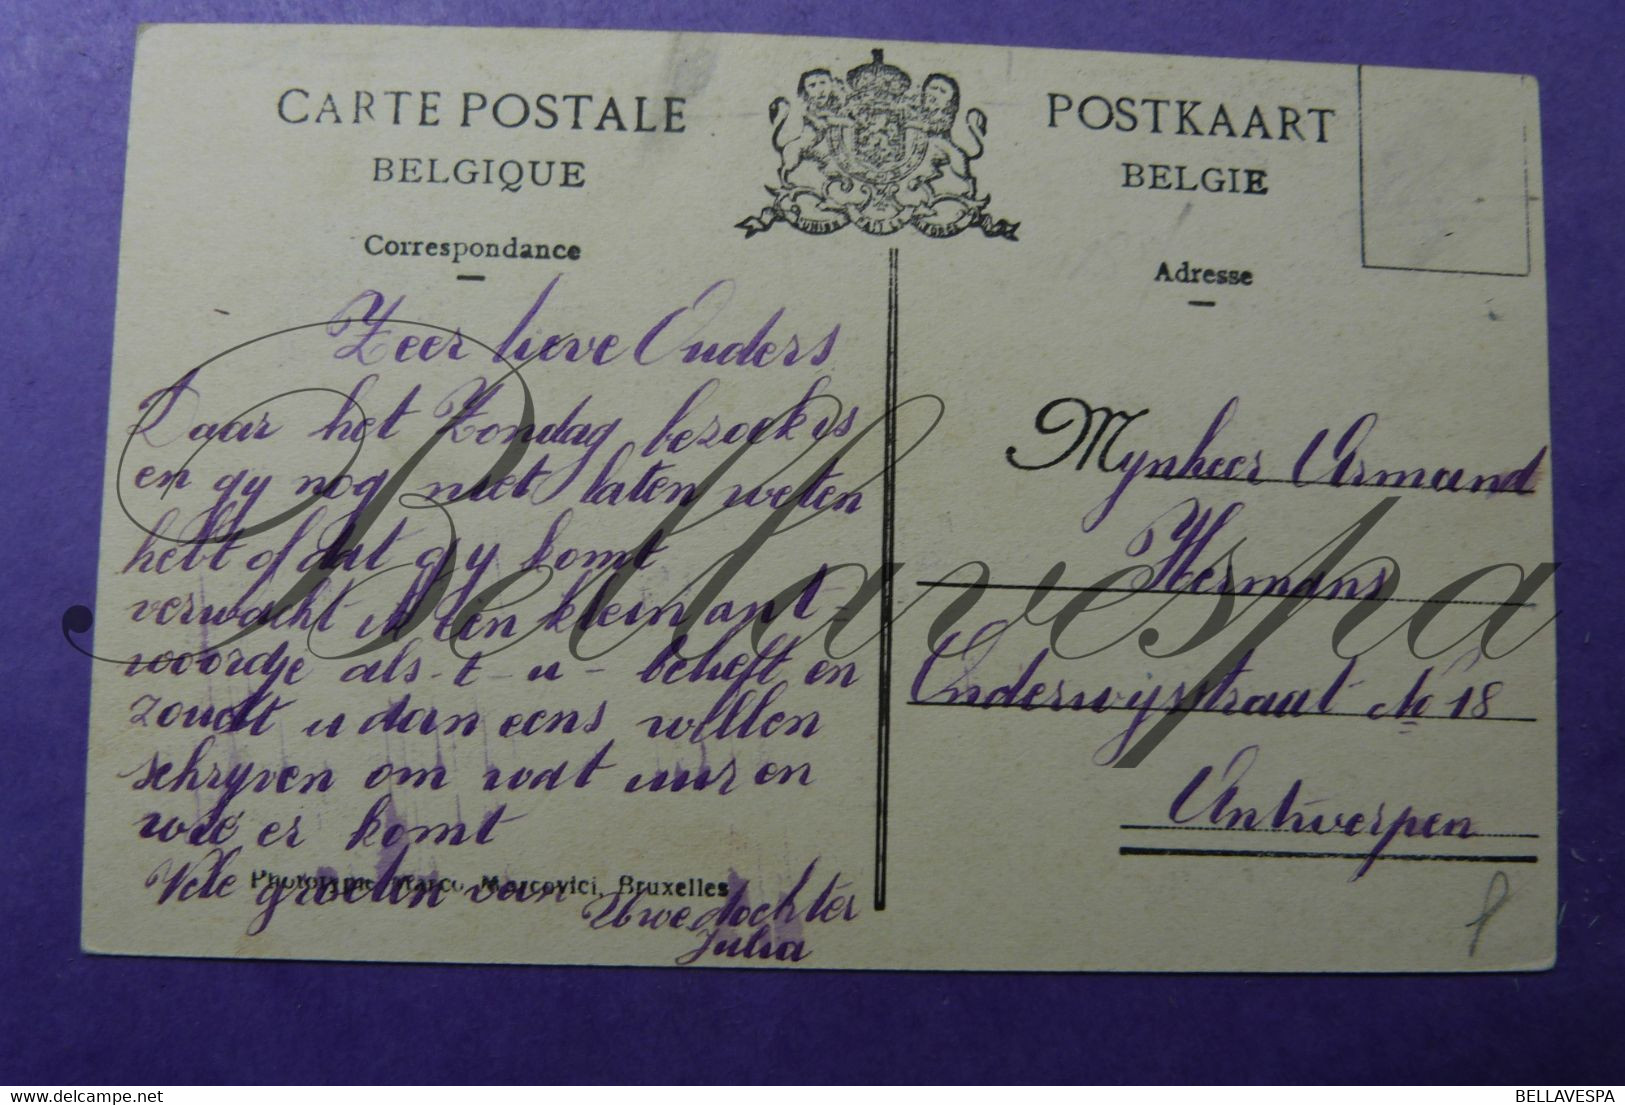 CARTE POSTALE
BELGIQUE
Correspondance
POSTKAART
BELGIE
Adresse
L'UNION FAIT LA FORCE
Zeer lieve Ouders
Daar het Zondag bezoek is
en gy nog niet laten weten
hebt of dat gy komt
verwacht ik een klein ant-
woordje als-t-u-belieft en
zoudt u dan eens willen
schryven om wat uur en
wie er komt
Vele groeten van Uwe dochter
Julia
Phototypie Marco Marcovici, Bruxelles
Mynheer Armand
Hermans
Onderwijstraat № 18
Antwerpen
Bellavespa
BELLAVESPA